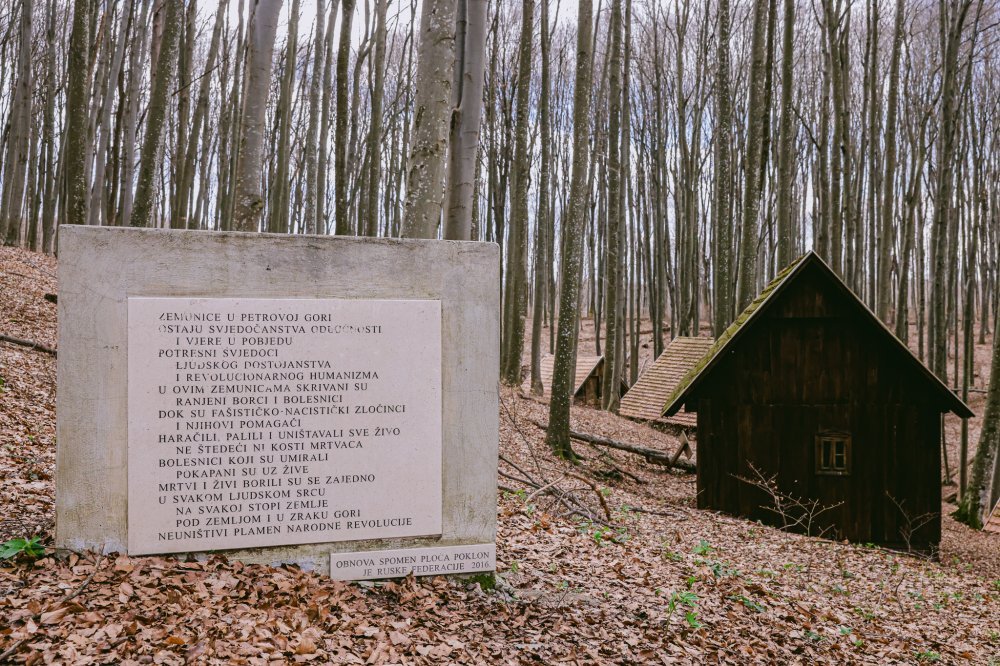 ZEMUNICE U PETROVOJ GORI
OSTAJU SVJEDOČANSTVA ODLUČNOSTI
I VJERE U POBJEDU
POTRESNI SVJEDOCI
LJUDSKOG DOSTOJANSTVA
I REVOLUCIONARNOG HUMANIZMA
U OVIM ZEMUNICAMA SKRIVANI SU
RANJENI BORCI I BOLESNICI
DOK SU FAŠISTIČKO-NACISTIČKI ZLOČINCI
I NJIHOVI POMAGAČI
HARAČILI, PALILI I UNIŠTAVALI SVE ŽIVO
NE ŠTEDEĆI NI KOSTI MRTVACA
BOLESNICI KOJI SU UMIRALI
POKAPANI SU UZ ŽIVE
MRTVI I ŽIVI BORILI SU SE ZAJEDNO
U SVAKOM LJUDSKOM SRCU
NA SVAKOJ STOPI ZEMLJE
POD ZEMLJOM I U ZRAKU GORI
NEUNIŠTIVI PLAMEN NARODNE REVOLUCIJE
OBNOVA SPOMEN PLOČA POKLON
JE RUSKE FEDERACIJE 2016.